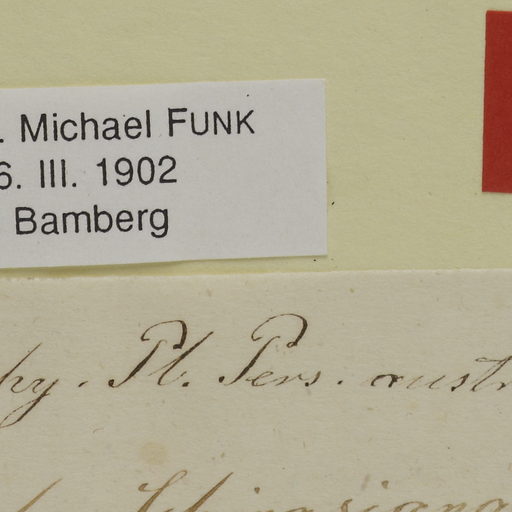 . Michael FUNK
6. III. 1902
Bamberg
hy. Pl. Pers. austr